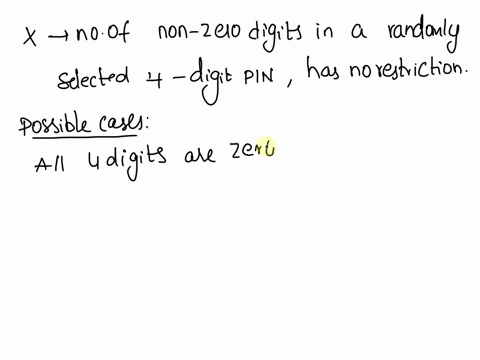 X → no. of non-zero digits in a randomly
selected 4-digit PIN, has no restriction.
Possible cases:
All 4 digits are zero